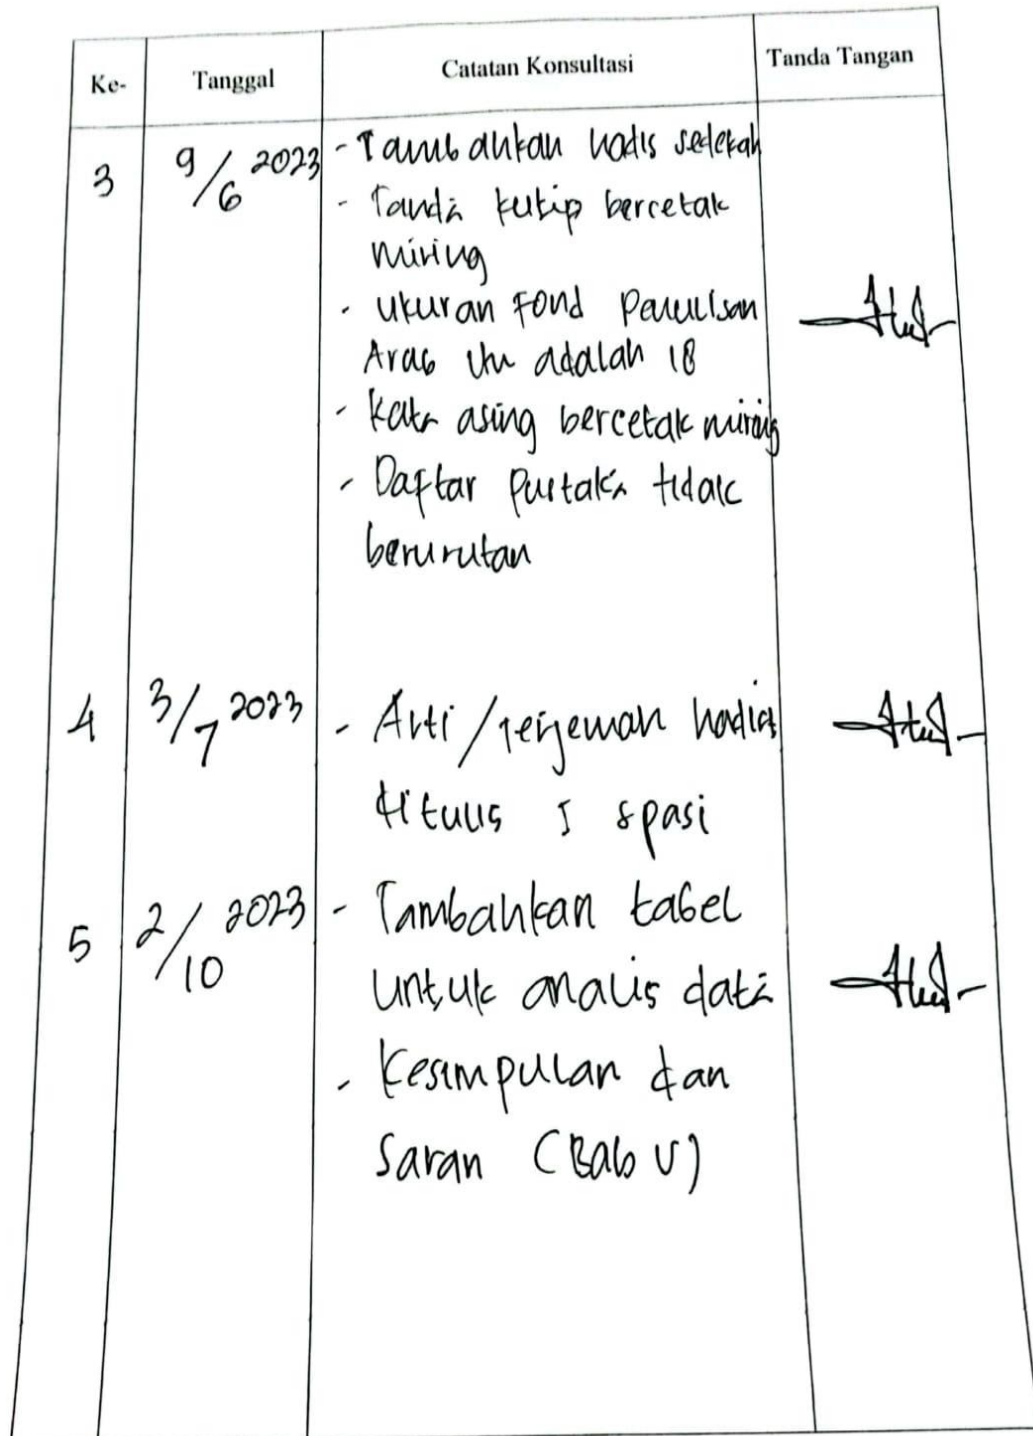 Ke- Tanggal Catatan Konsultasi Tanda Tangan
3 9/6 2023 - Tambahkan hadis sedekah
- Tanda kutip bercetak
miring
- Ukuran Fond Penulisan
Arab itu adalah 18
- Kata asing bercetak miring
- Daftar Pustaka tidak
berurutan
4 3/7 2023 - Arti/terjemah hadist
ditulis 1 spasi
5 2/10 2023 - Tambahkan tabel
untuk analis data
- Kesimpulan dan
Saran (Bab V)